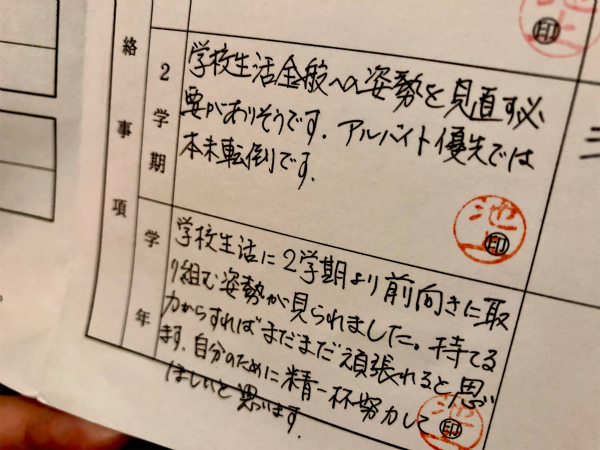 絡事項
2学期
学校生活全般への姿勢を見直す必
要がありそうです。アルバイト優先では
本末転倒です。
池上
印
学年
学校生活に2学期より前向きに取
り組む姿勢が見られました。持てる
力からすればまだまだ頑張れると思い
ます。自分のために精一杯努力して
ほしいと思います。
池上
印
印